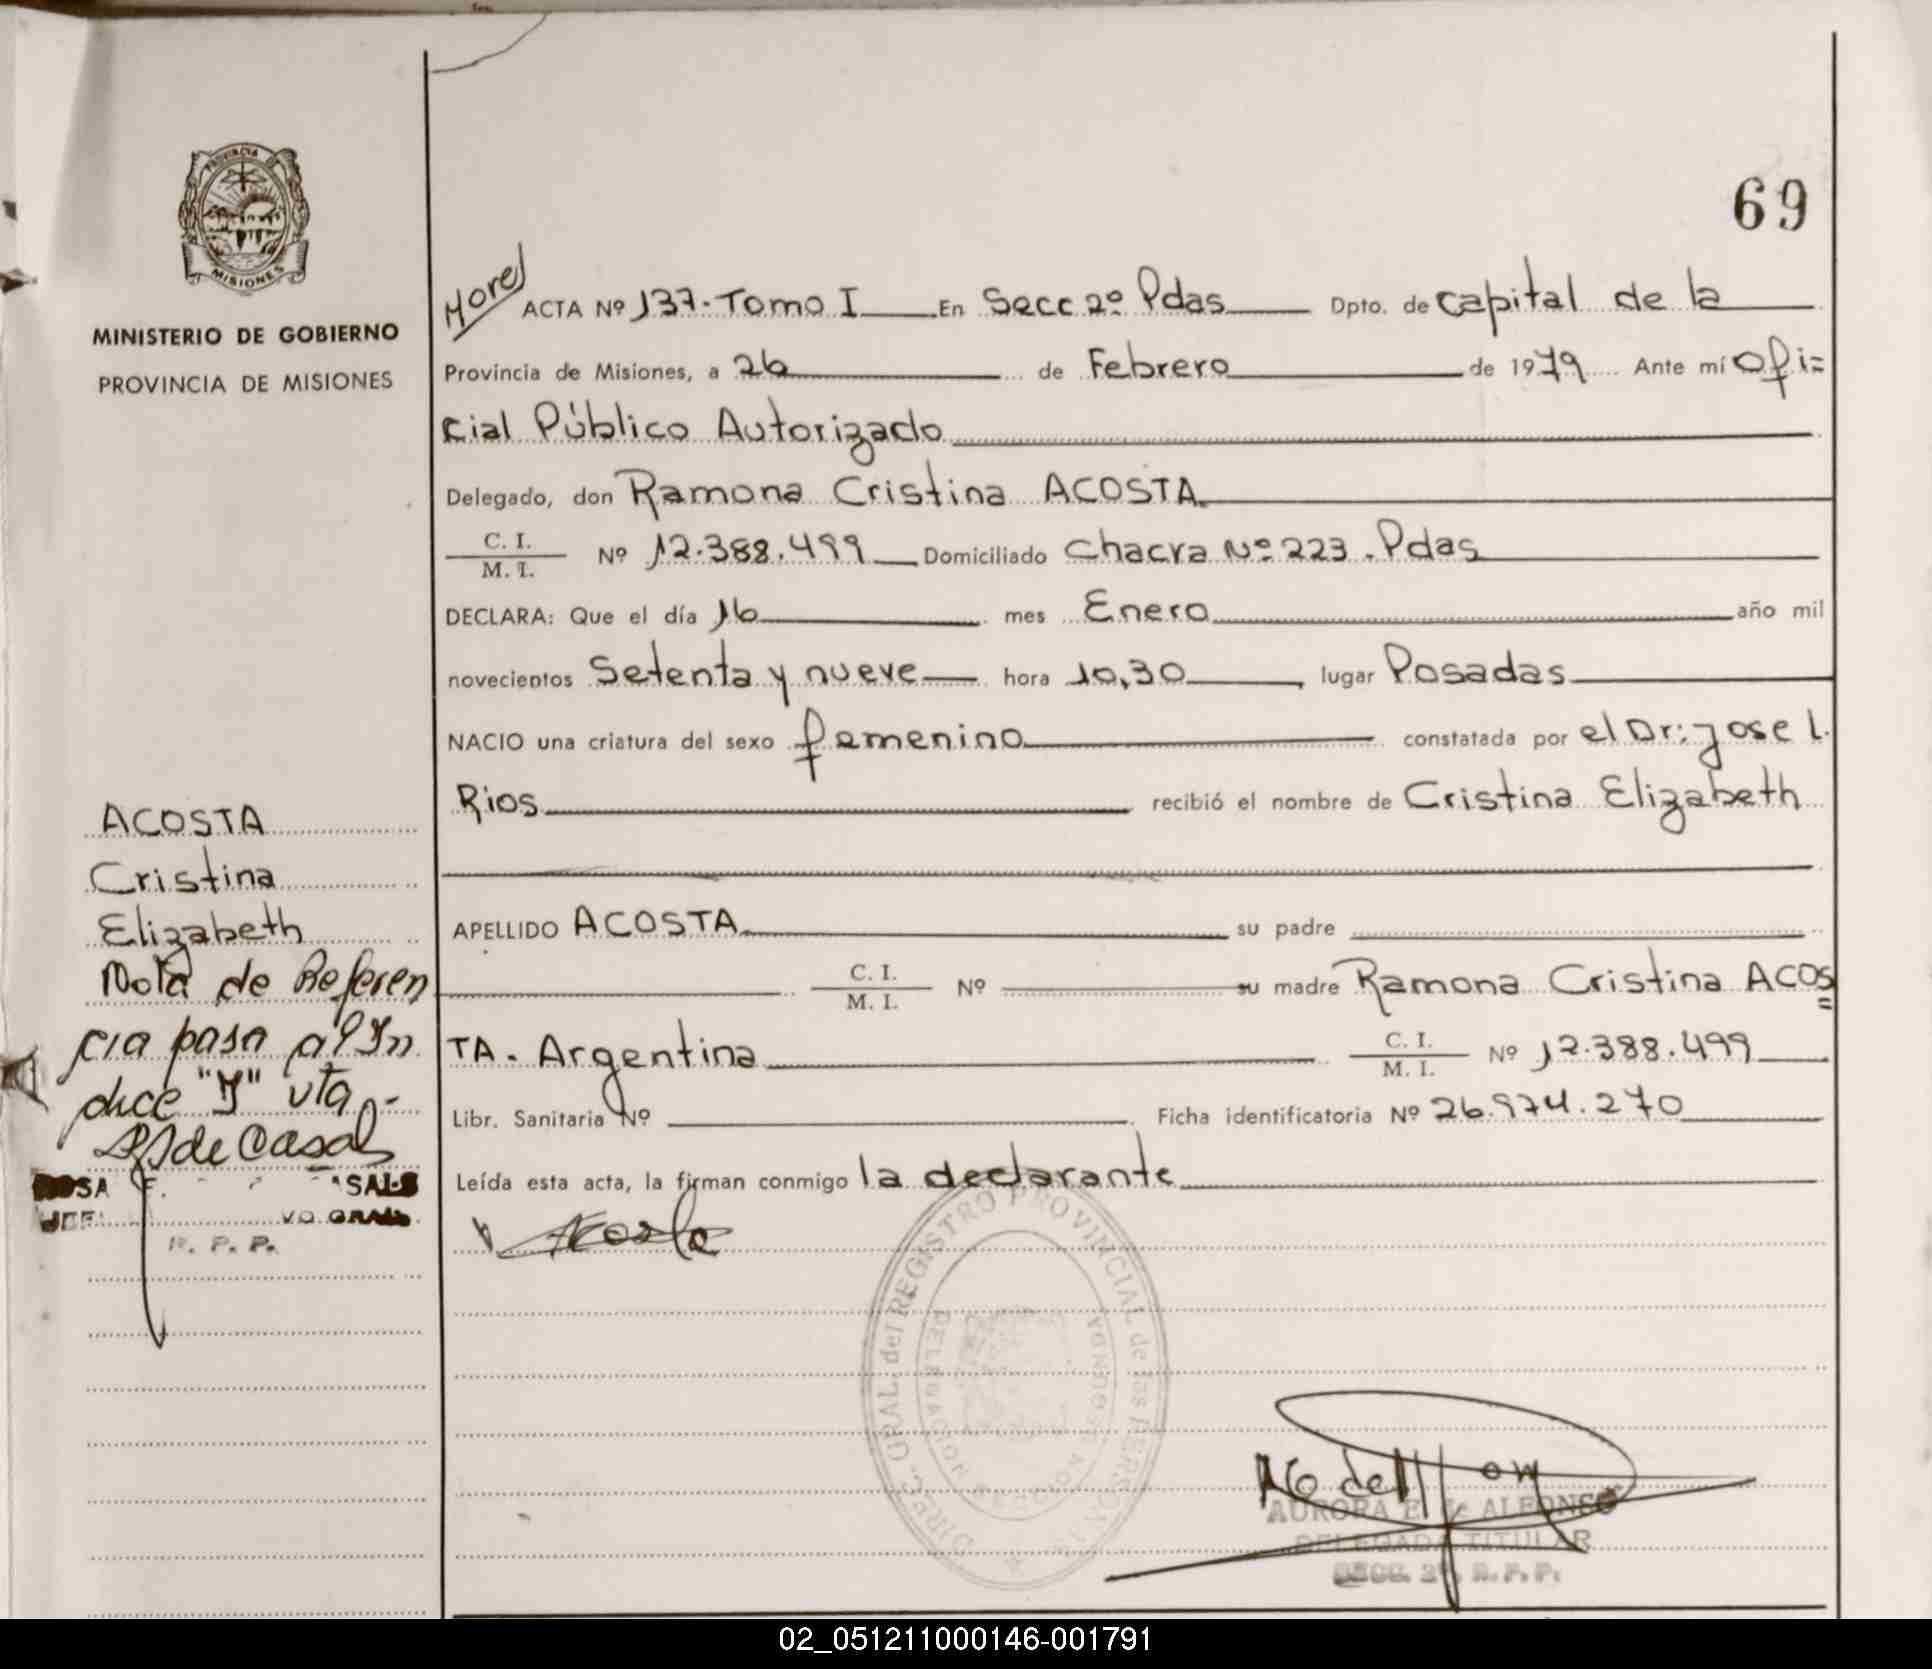 PROVINCIA DE
MISIONES
MINISTERIO DE GOBIERNO
PROVINCIA DE MISIONES
69
ACTA Nº 137-Tomo I En Secc 2º Pdas Dpto. de capital de la
Provincia de Misiones, a 26 de Febrero de 1979 Ante mí Ofi=
cial Público Autorizado
Delegado, don Ramona Cristina ACOSTA
C. I.
M. I.
Nº 12.388.499 Domiciliado Chacra Nº 223. Pdas
DECLARA: Que el día 16 mes Enero año mil
novecientos Setenta y nueve hora 10,30 lugar Posadas
NACIO una criatura del sexo femenino constatada por el Dr: Jose L.
Rios recibió el nombre de Cristina Elizabeth
APELLIDO ACOSTA su padre
C. I.
M. I.
Nº su madre Ramona Cristina ACOS=
TA. Argentina
C. I.
M. I.
Nº 12.388.499
Libr. Sanitaria Nº Ficha identificatoria Nº 26.974.270
Leída esta acta, la firman conmigo la declarante
Acosta
ACOSTA
Cristina
Elizabeth
Nota de Referen
cia pasa al In
dice "I" vta.-
de Casal
R. P. P.
DIREC. GRAL. del REGISTRO PROVINCIAL de las PERSONAS
DELEGACION SECCION SEGUNDA
AURORA E. de ALFONSO
DELEGADA TITULAR
SECC. 2º. R.P.P.
02_051211000146-001791